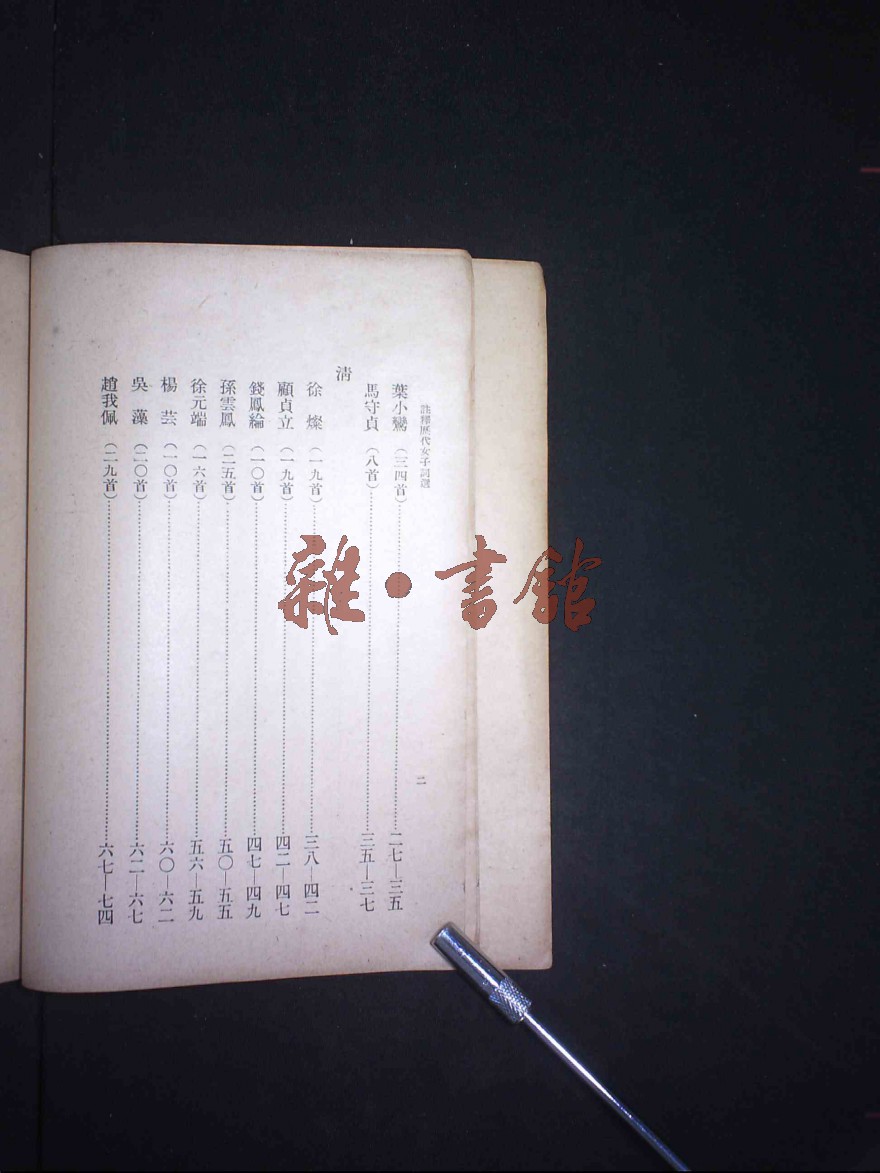 註釋歷代女子詞選
二
葉小鸞（三四首）……二七—三五
馬守貞（八首）……三五—三七
清
徐燦（一九首）……三八—四二
顧貞立（一九首）……四二—四七
錢鳳綸（一〇首）……四七—四九
孫雲鳳（二五首）……五〇—五五
徐元端（一六首）……五六—五九
楊芸（一〇首）……六〇—六二
吳藻（二〇首）……六二—六七
趙我佩（二九首）……六七—七四
雜·書館